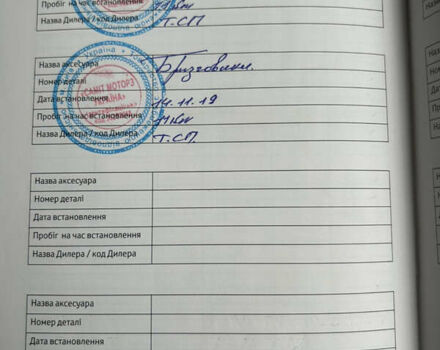 Пробіг на час встановлення
Назва Дилера / код Дилера Т.СП
Назва аксесуара Бризговики.
Номер деталі
Дата встановлення 14.11.19
Пробіг на час встановлення
Назва Дилера / код Дилера Т.СП.
«САМІТ МОТОРЗ
УКРАЇНА»
Україна
Назва аксесуара
Номер деталі
Дата встановлення
Пробіг на час встановлення
Назва Дилера / код Дилера
Назва аксесуара
Номер деталі
Дата встановлення